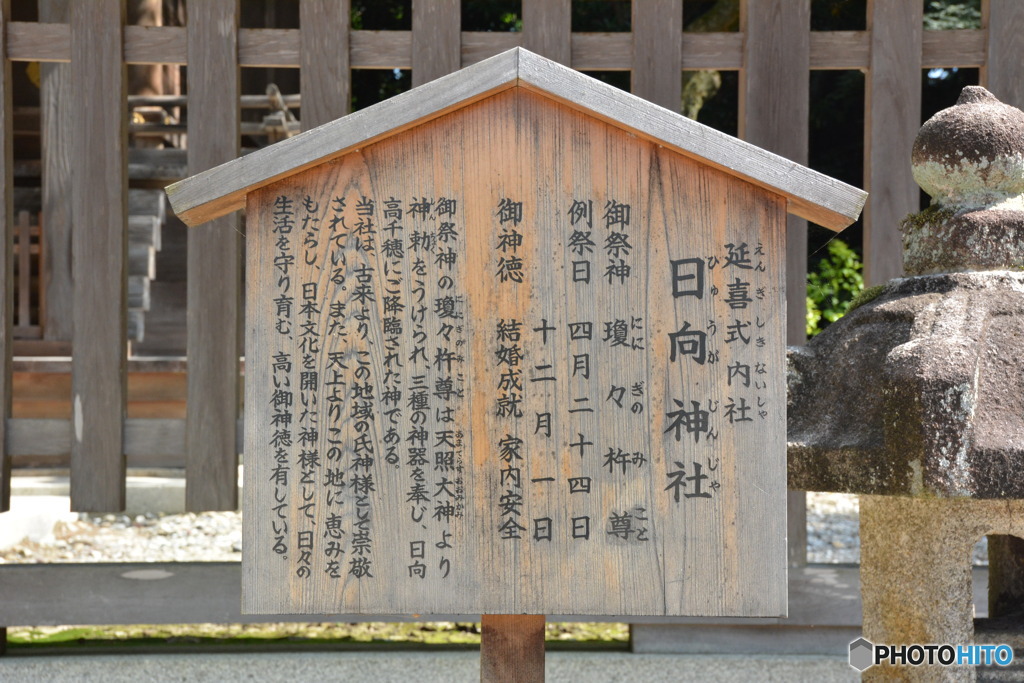 延喜式内社
えんぎしきないしゃ
日向神社
ひゅうがじんじゃ
御祭神 瓊々杵尊
ににぎのみこと
例祭日 四月二十四日
十二月一日
御神徳 結婚成就 家内安全
御祭神の瓊々杵尊は天照大神より
ににぎのみこと あまてらすおおみかみ
神勅をうけられ、三種の神器を奉じ、日向
高千穂にご降臨された神である。
当社は、古来より、この地域の氏神様として崇敬
されている。また、天上よりこの地に恵みを
もたらし、日本文化を開いた神様として、日々の
生活を守り育む、高い御神徳を有している。
PHOTOHITO